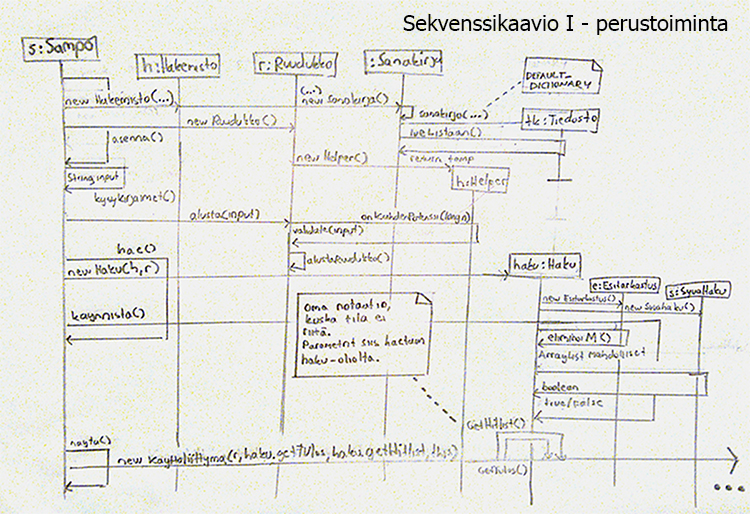 Sekvenssikaavio I - perustoiminta
s:Sampo
h:Hakemisto
r:Ruudukko
:Sanakirja
DEFAULT_
DICTIONARY
new Hakemisto(...)
(...)
new Sanakirja()
sanakirja(...)
tk:Tiedosto
new Ruudukko()
asenna()
lueListaan()
return temp
new Helper()
String input
h:Helper
kysyKirjaimet()
alusta(input)
validate(input)
hae()
alustaRuudukko()
haku:Haku
new Haku(h,r)
e:Esitarkastus
s:SyvaHaku
new Esitarkastus()
new SyvaHaku()
Oma notaatio,
koska tila ei
riitä.
Parametrit siis haetaan
haku-oliolta.
kaynnista()
eliminoiM()
ArrayList mahdolliset
boolean
true/false
GetHitlist()
nayta()
new Kayttoliittyma(r, haku.getTulos, haku.getHitlist, this)
GetTulos()
...